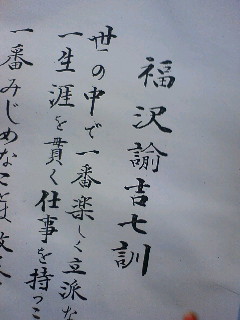 福沢諭吉七訓
世の中で一番楽しく立派な
一生涯を貫く仕事を持つこ
一番みじめなことは